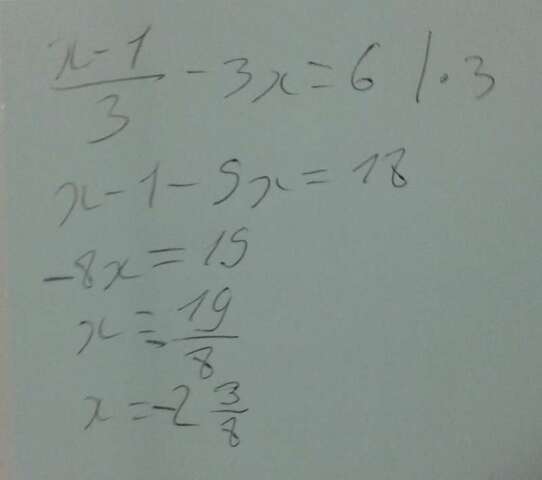 \frac{x-1}{3} - 3x = 6 / \cdot 3
x - 1 - 9x = 18
-8x = 19
x = -\frac{19}{8}
x = -2 \frac{3}{8}